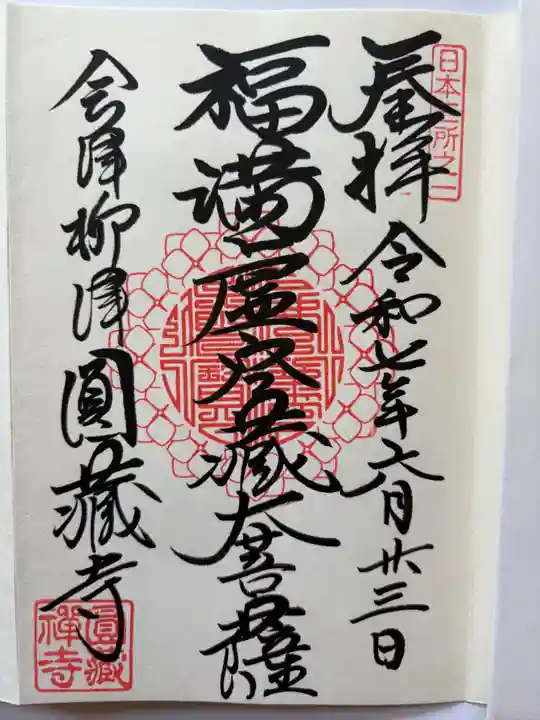 日本三所之一
奉拝 令和七年六月廿三日
福満虚空蔵大菩薩
会津柳津圓蔵寺
圓蔵禅寺